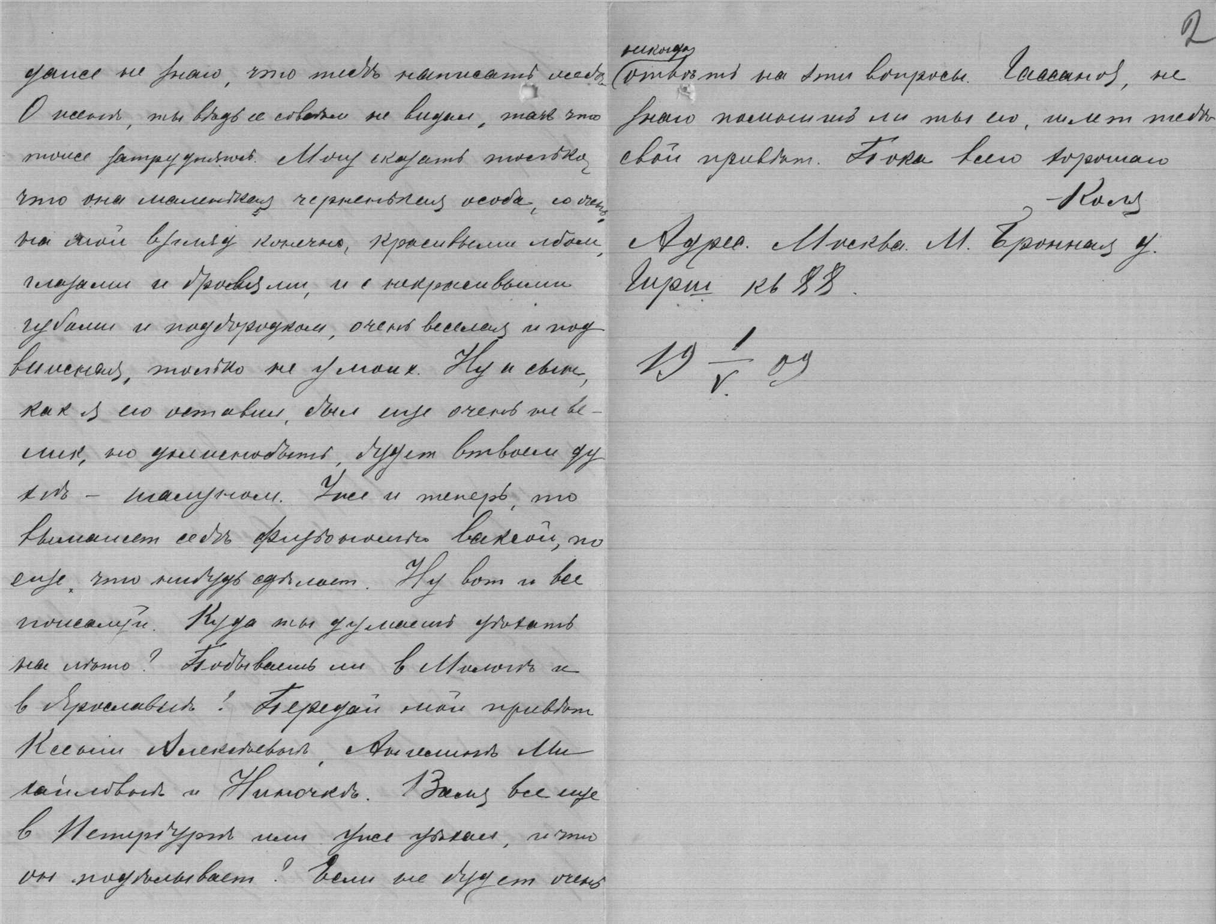 даже не знаю, что тебѣ написать о себѣ.
О женѣ, ты вѣдь ее совсѣм не видал, так что
тоже затрудняюсь. Могу сказать только,
что она маленькая черненькая особа, со очень,
на мой взгляд конечно, красивыми лбом,
глазами и бровями, и с некрасивыми
губами и подбородком, очень веселая и под
вижная, только не умоих. Ну и сын,
как я его оставил, был еще очень не ве-
лик, но должно быть, будет в твоем ду
хѣ – шалуном. Уже и теперь, то
вымажет себѣ физіономію ваксой, то
еще, что нибудь сдѣлает. Ну вот и все
пожалуй. Куда ты думаешь уѣхать
на лѣто? Побываешь ли в Мологѣ и
в Ярославлѣ? Передай мой привѣт
Ксеніи Алексѣевнѣ, Ангелинѣ Ми
хайловнѣ и Ниночкѣ. Валя все еще
в Петербургѣ или уже уѣхал, и что
он подѣлывает? Если не будет очень
2
никогда
отвѣть на эти вопросы. Гассанов, не
знаю помнишь ли ты его, шлет тебѣ
свой привѣт. Пока всего хорошаго
Коля
Адрес. Москва. М. Бронная д.
Гирш кв 88.
19 1/V 09